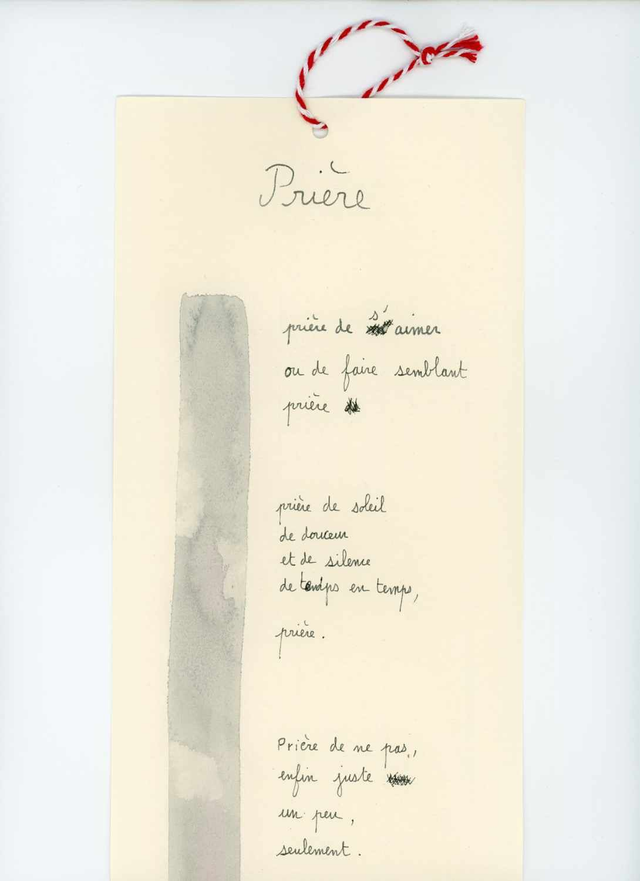 Prière
prière de s'aimer
ou de faire semblant
prière
prière de soleil
de douceur
et de silence
de temps en temps,
prière.
Prière de ne pas,
enfin juste
un peu,
seulement.